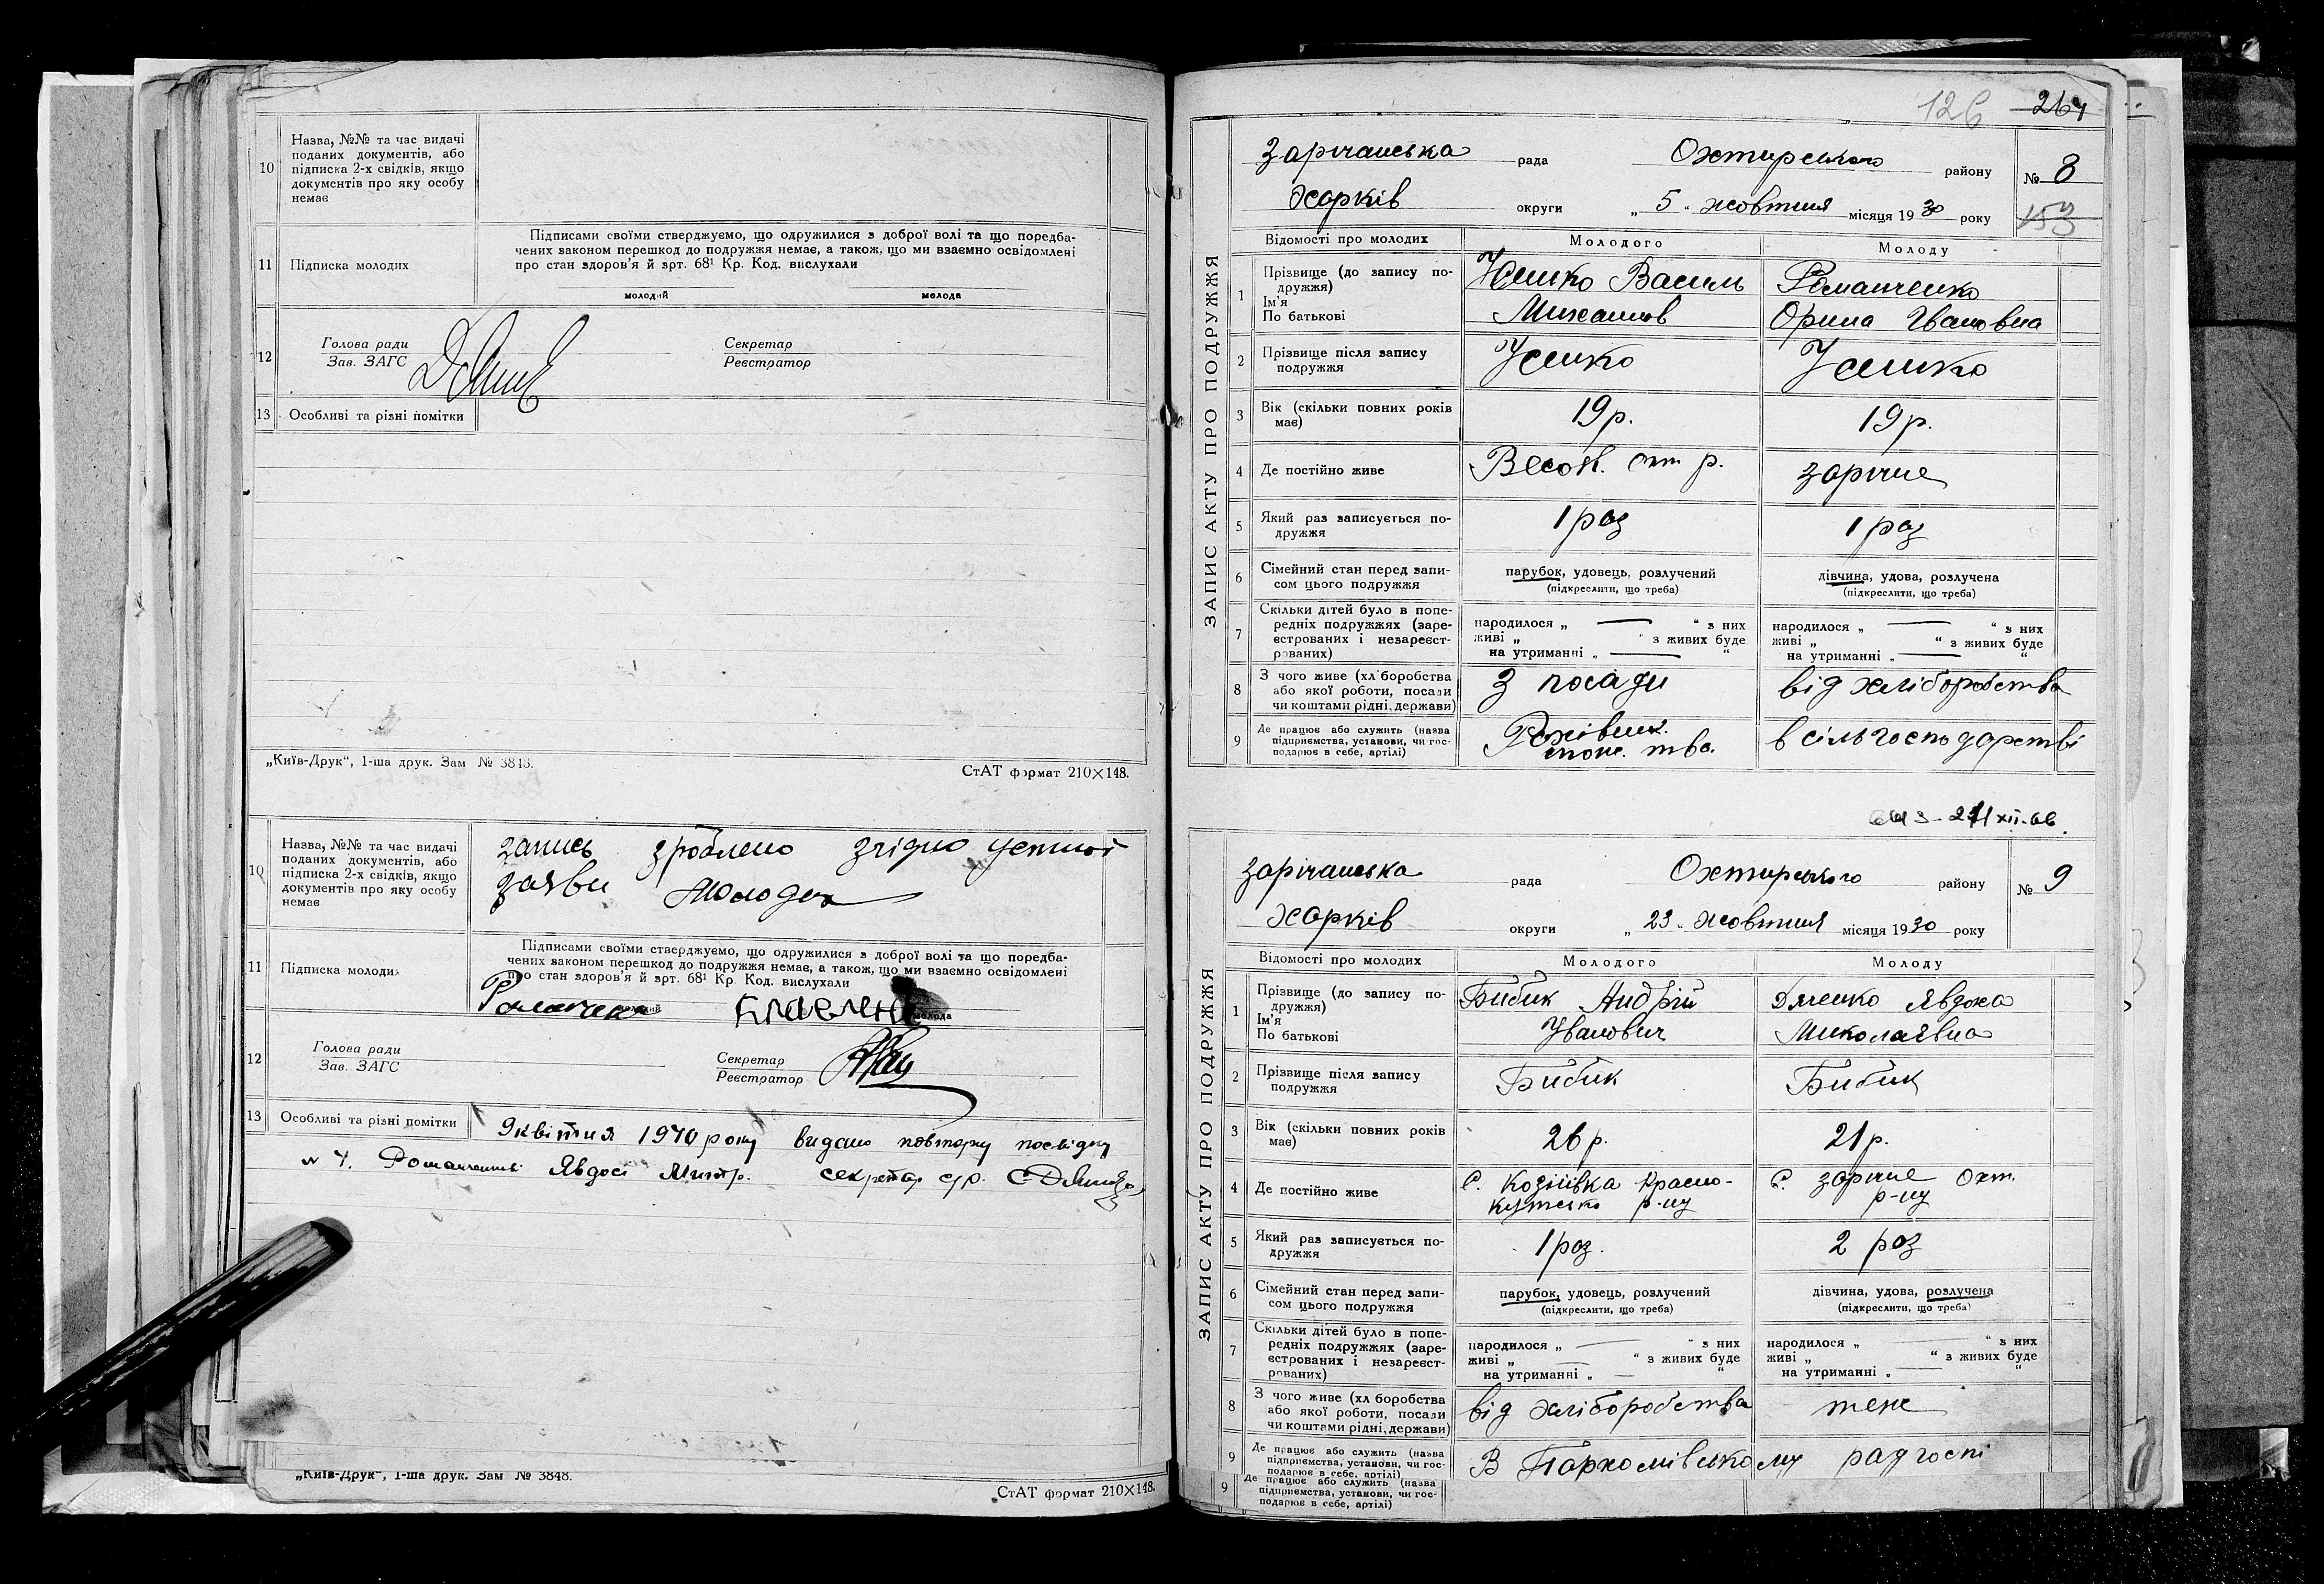 10
Назва, №№ та час видачі
поданих документів, або
підписка 2-х свідків, якщо
документів про яку особу
немає
11
Підписка молодих
Підписами своїми стверджуємо, що одружилися з доброї волі та що поредба-
чених законом перешкод до подружжя немає, а також, що ми взаємно освідомлені
про стан здоров'я й зрт. 68¹ Кр. Код. вислухали
молодий
молода
12
Голова ради
Зав. ЗАГС
Секретар
Реєстратор
13
Особливі та різні помітки
„Київ-Друк“, 1-ша друк. Зам № 3848.
СтАТ формат 210×148.
10
Назва, №№ та час видачі
поданих документів, або
підписка 2-х свідків, якщо
документів про яку особу
немає
запись зроблено згідно устної
заяви молодих
11
Підписка молодих
Підписами своїми стверджуємо, що одружилися з доброї волі та що поредба-
чених законом перешкод до подружжя немає, а також, що ми взаємно освідомлені
про стан здоров'я й зрт. 68¹ Кр. Код. вислухали
молода
12
Голова ради
Зав. ЗАГС
Секретар
Реєстратор
13
Особливі та різні помітки
9 квітня 1940 року видано повторну посвідку
№ 4. Романченкові Явдосі Митр. секретар с/р.
„Київ-Друк“, 1-ша друк. Зам № 3848.
СтАТ формат 210×148.
126 264
ЗАПИС АКТУ ПРО ПОДРУЖЖЯ
Зарічанська рада Охтирського району
№ 8
Харків округи „5“ жовтня місяця 1930 року
153
Відомості про молодих
Молодого
Молоду
1
Прізвище (до запису по-
дружжя)
Ім'я
По батькові
Усишко Василь
Михайлов
Романченко
Орина Івановна
2
Прізвище після запису
подружжя
3
Вік (скільки повних років
має)
19 р.
19 р.
4
Де постійно живе
Охт р.
Заріччє
5
Який раз записується по-
дружжя
1 раз
1 раз
6
Сімейний стан перед запи-
сом цього подружжя
парубок, удовець, розлучений
(підкреслити, що треба)
дівчина, удова, розлучена
(підкреслити, що треба)
7
Скільки дітей було в попе-
редніх подружжях (заре-
єстрованих і незареєст-
рованих)
народилося „ — “ з них
живі „ “ з живих буде
на утриманні „ — “
народилося „ — “ з них
живі „ “ з живих буде
на утриманні „ — “
8
З чого живе (хліборобства
або якої роботи, посади
чи коштами рідні, держави)
З посади
від хліборобства
9
Де працює або служить (назва
підприємства, установи, чи гос-
подарює в себе, артілі)
спож. тва.
в сільгосподарстві
ЗАПИС АКТУ ПРО ПОДРУЖЖЯ
Зарічанська рада Охтирського району
№ 9
Харків округи „23“ жовтня місяця 1930 року
Відомості про молодих
Молодого
Молоду
1
Прізвище (до запису по-
дружжя)
Ім'я
По батькові
Бибик Андрій
Іванович
Дяченко Явдоха
Миколаївна
2
Прізвище після запису
подружжя
Бибик
Бибик
3
Вік (скільки повних років
має)
26 р.
21 р.
4
Де постійно живе
С. Козіївка Красно-
кутсько р-ну
С. Заріччє Охт.
р-ну
5
Який раз записується по-
дружжя
1 раз.
2 раз
6
Сімейний стан перед запи-
сом цього подружжя
парубок, удовець, розлучений
(підкреслити, що треба)
дівчина, удова, розлучена
(підкреслити, що треба)
7
Скільки дітей було в попе-
редніх подружжях (заре-
єстрованих і незареєст-
рованих)
народилося „ — “ з них
живі „ — “ з живих буде
на утриманні „ — “
народилося „ — “ з них
живі „ “ з живих буде
на утриманні „ — “
8
З чого живе (хліборобства
або якої роботи, посади
чи коштами рідні, держави)
від хліборобства
теж
9
Де працює або служить (назва
підприємства, установи, чи гос-
подарює в себе, артілі)
В Пархомівському радгоспі
9
Де працює або служить (назва
підприємства, установи, чи гос-
подарює в себе, артілі)